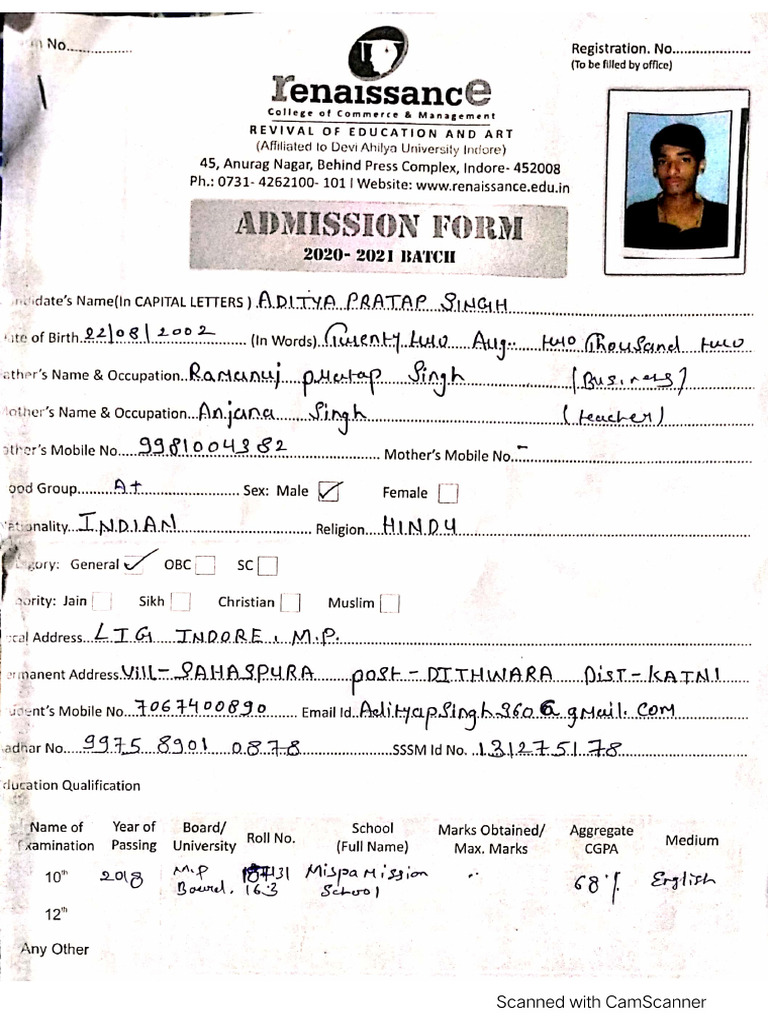 No...............
Registration. No....................
(To be filled by office)
renaissance
College of Commerce & Management
REVIVAL OF EDUCATION AND ART
(Affiliated to Devi Ahilya University Indore)
45, Anurag Nagar, Behind Press Complex, Indore- 452008
Ph.: 0731- 4262100- 101 | Website: www.renaissance.edu.in
ADMISSION FORM
2020- 2021 BATCH
didate's Name(In CAPITAL LETTERS ) ADITYA PRATAP SINGH
te of Birth 22/08/2002 (In Words) Twenty two Aug. two Thousand two
ather's Name & Occupation Ramanuj pratap Singh (Business)
other's Name & Occupation Anjana Singh (teacher)
ther's Mobile No. 9981004382 Mother's Mobile No. -
ood Group A+ Sex: Male ✓ Female
ationality INDIAN Religion HINDU
gory: General ✓ OBC SC
ority: Jain Sikh Christian Muslim
cal Address LIG INDORE, M.P.
rmanent Address Vill- SAHASPURA post- DITHWARA Dist- KATNI
dent's Mobile No. 7067400890 Email Id. AdityapSingh360@gmail.com
adhar No. 9975 8901 0878 SSSM Id No. 131275178
ducation Qualification
Name of Examination Year of Passing Board/ University Roll No. School (Full Name) Marks Obtained/ Max. Marks Aggregate CGPA Medium
10th 2018 M.P Board. 163 Mispa Mission School 68% English
12th
Any Other
Scanned with CamScanner